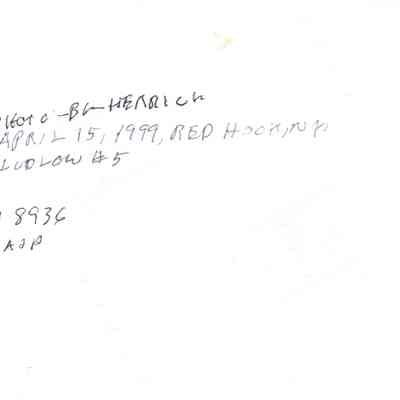 PHOTO - BY HERRICK
APRIL 15, 1999, RED HOOK, NY
LUDLOW #5
8936